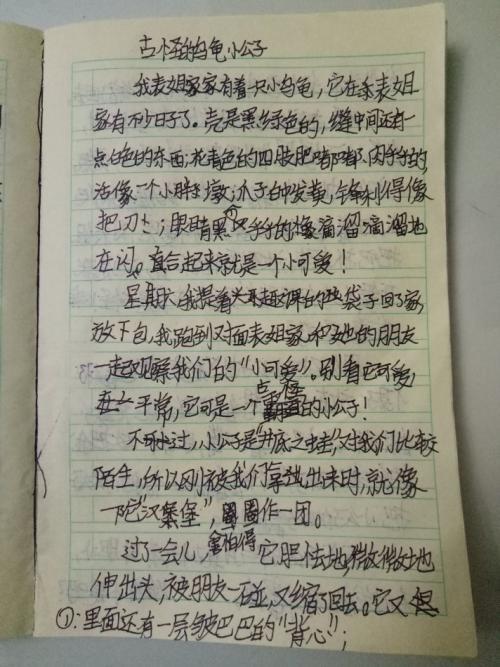 古怪的乌龟小公子
我表姐家家有着一只小乌龟，它在亲表姐
家有不少日子了。壳是黑绿色的，缝中间还有一
点白色的东西；花青色的四肢肥嘟嘟、肉乎乎的，
活像一个小胖墩；爪子中发黄，锋利得像
把刀子；眼睛黑①乎乎的像滴溜滴溜地
在闪。直合起来就是一个小可爱！
星期六，我提着兴趣课的袋子回了家，
放下包，我跑到对面表姐家，和她的朋友
一起观察我们的“小可爱”。别看它可爱，
在平常，它可是一个古怪的小公子！
不过，小公子是“井底之蛙”，对我们比较
陌生，所以刚被我们拿出来时，就像
一陀“汉堡”，圈作一团。
过了一会儿，害怕得它胆怯地，微微地
伸出头，被朋友一碰，又缩了回去。它又
①：里面还有一层皱巴巴的“背心”；